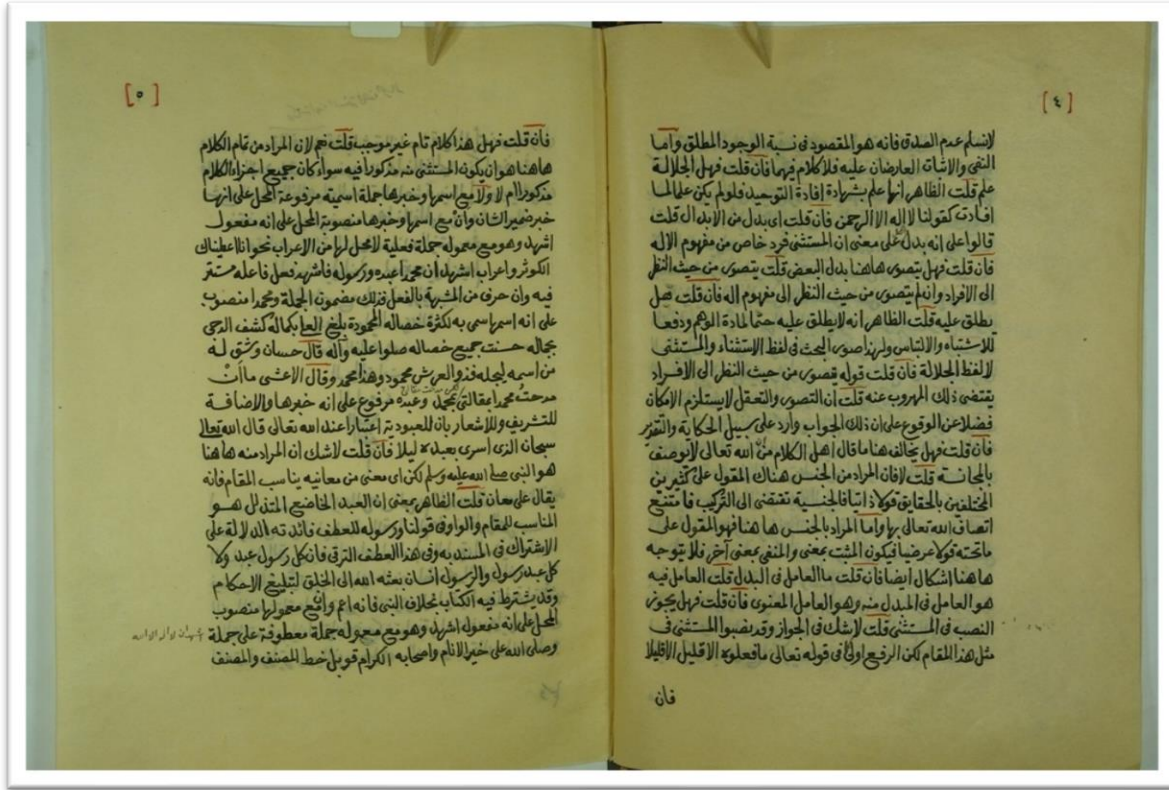 [٤]
لانسلم عدم الصدق فانه هو المقصود فى نسبة الوجود المطلق واما
النفى والاثبات العارضان عليه فلاكلام فيهما فان قلت فهل الجلالة
علم قلت الظاهر انها علم بشهادة إفادة التوحيد فلو لم يكن علما لما
افادت كقولنا لا اله الا الرحمن فان قلت اى بدل من الابدال قلت
قالوا على انه بدل على معنى ان المستثنى فرد خاص من مفهوم الاله
فان قلت فهل يتصور هاهنا بدل البعض قلت يتصور من حيث النظر
الى الافراد وان لم يتصور من حيث النظر الى مفهوم اله فان قلت هل
يطلق عليه قلت الظاهر انه لايطلق عليه حتما لمادة الوهم ودفعا
للاشتباه والالتباس ولهذا صور البحث فى لفظ الاستثناء والمستثنى
لا لفظ الجلالة فان قلت قوله يتصور من حيث النظر الى الافراد
يقتضى ذلك المهروب عنه قلت ان التصور والتعقل لايستلزم الامكان
فضلا عن الوقوع على ان ذلك الجواب وارد على سبيل الحكاية والتقدير
فان قلت فهل يخالف هنا ما قال اهل الكلام من ان الله تعالى لاتوصف
بالمجانسة قلت لا فان المراد من الجنس هناك المقول على كثيرين
المختلفين بالحقايق قولا ذاتيا فالجنسية تقتضى الى التركيب فامتنع
اتصاف الله تعالى بها واما المراد بالجنس هاهنا فهو المقول على
ماتحته قولا عرضيا فيكون المثبت بمعنى والمنفى بمعنى آخر فلا يتوجه
هاهنا اشكال ايضا فان قلت ما العامل فى البدل قلت العامل فيه
هو العامل فى المبدل منه وهو العامل المعنوى فان قلت فهل يجوز
النصب فى المستثنى قلت لاشك فى الجواز وقد يضبوا المستثنى فى
مثل هذا المقام لكن الرفع اولى فى قوله تعالى مافعلوه الا قليل الاقليلا
فان
[٥]
فان قلت فهل هذا كلام تام غير موجب قلت نعم لان المراد من تمام الكلام
هاهنا هو ان يكون المستثنى منه مذكورا فيه سواء كان جميع اجزاء الكلام
مذكورا ام لا ولا مع اسمها وخبرها جملة اسمية مرفوعة المحل على انها
خبر ضمير الشان وان مع اسمها وخبرها منصوبة المحل على انه مفعول
اشهد وهو مع معموله جملة فعلية لامحل لها من الاعراب نحو انا اعطيناك
الكوثر واعراب اشهد ان محمدا عبده ورسوله فاشهد فعل فاعله مستتر
فيه وان حرف من المشبهة بالفعل مضمون الجملة ومحمدا منصوب
على انه اسمها سمى به لكثرة خصاله المحمودة بلغ العلا بكماله كشف الدجى
بجماله حسنت جميع خصاله صلوا عليه وآله قال حسان وشق له
من اسمه ليجله فذو العرش محمود وهذا محمد وقال الاعشى ما ان
مدحت محمدا بمقالتى وعبده مرفوع على انه خبرها والاضافة
للتشريف وللاشعار بان للعبودية إعتبارا عند الله تعالى قال الله تعالى
سبحان الذى اسرى بعبده ليلا فان قلت لاشك ان المراد منه هاهنا
هو النبى صلى الله عليه وسلم لكن اى معنى من معانيه يناسب المقام فانه
يقال على معان قلت الظاهر بمعنى ان العبد الخاضع المتذلل هو
المناسب للمقام والواو فى قولنا ورسوله للعطف فائدته الدلالة على
الاشتراك فى المسند به وفى هذا العطف الترقى فان كل رسول عبد ولا
كل عبد رسول والرسول انسان بعثه الله الى الخلق لتبليغ الاحكام
وقد يشترط فيه الكتاب بخلاف النبى فانه اعم وان مع معمولها منصوب
المحل على انه مفعول اشهد وهو مع معموله جملة معطوفة على جملة
وصلى الله على خير الانام واصحابه الكرام قوبل خط المصنف والمصنف